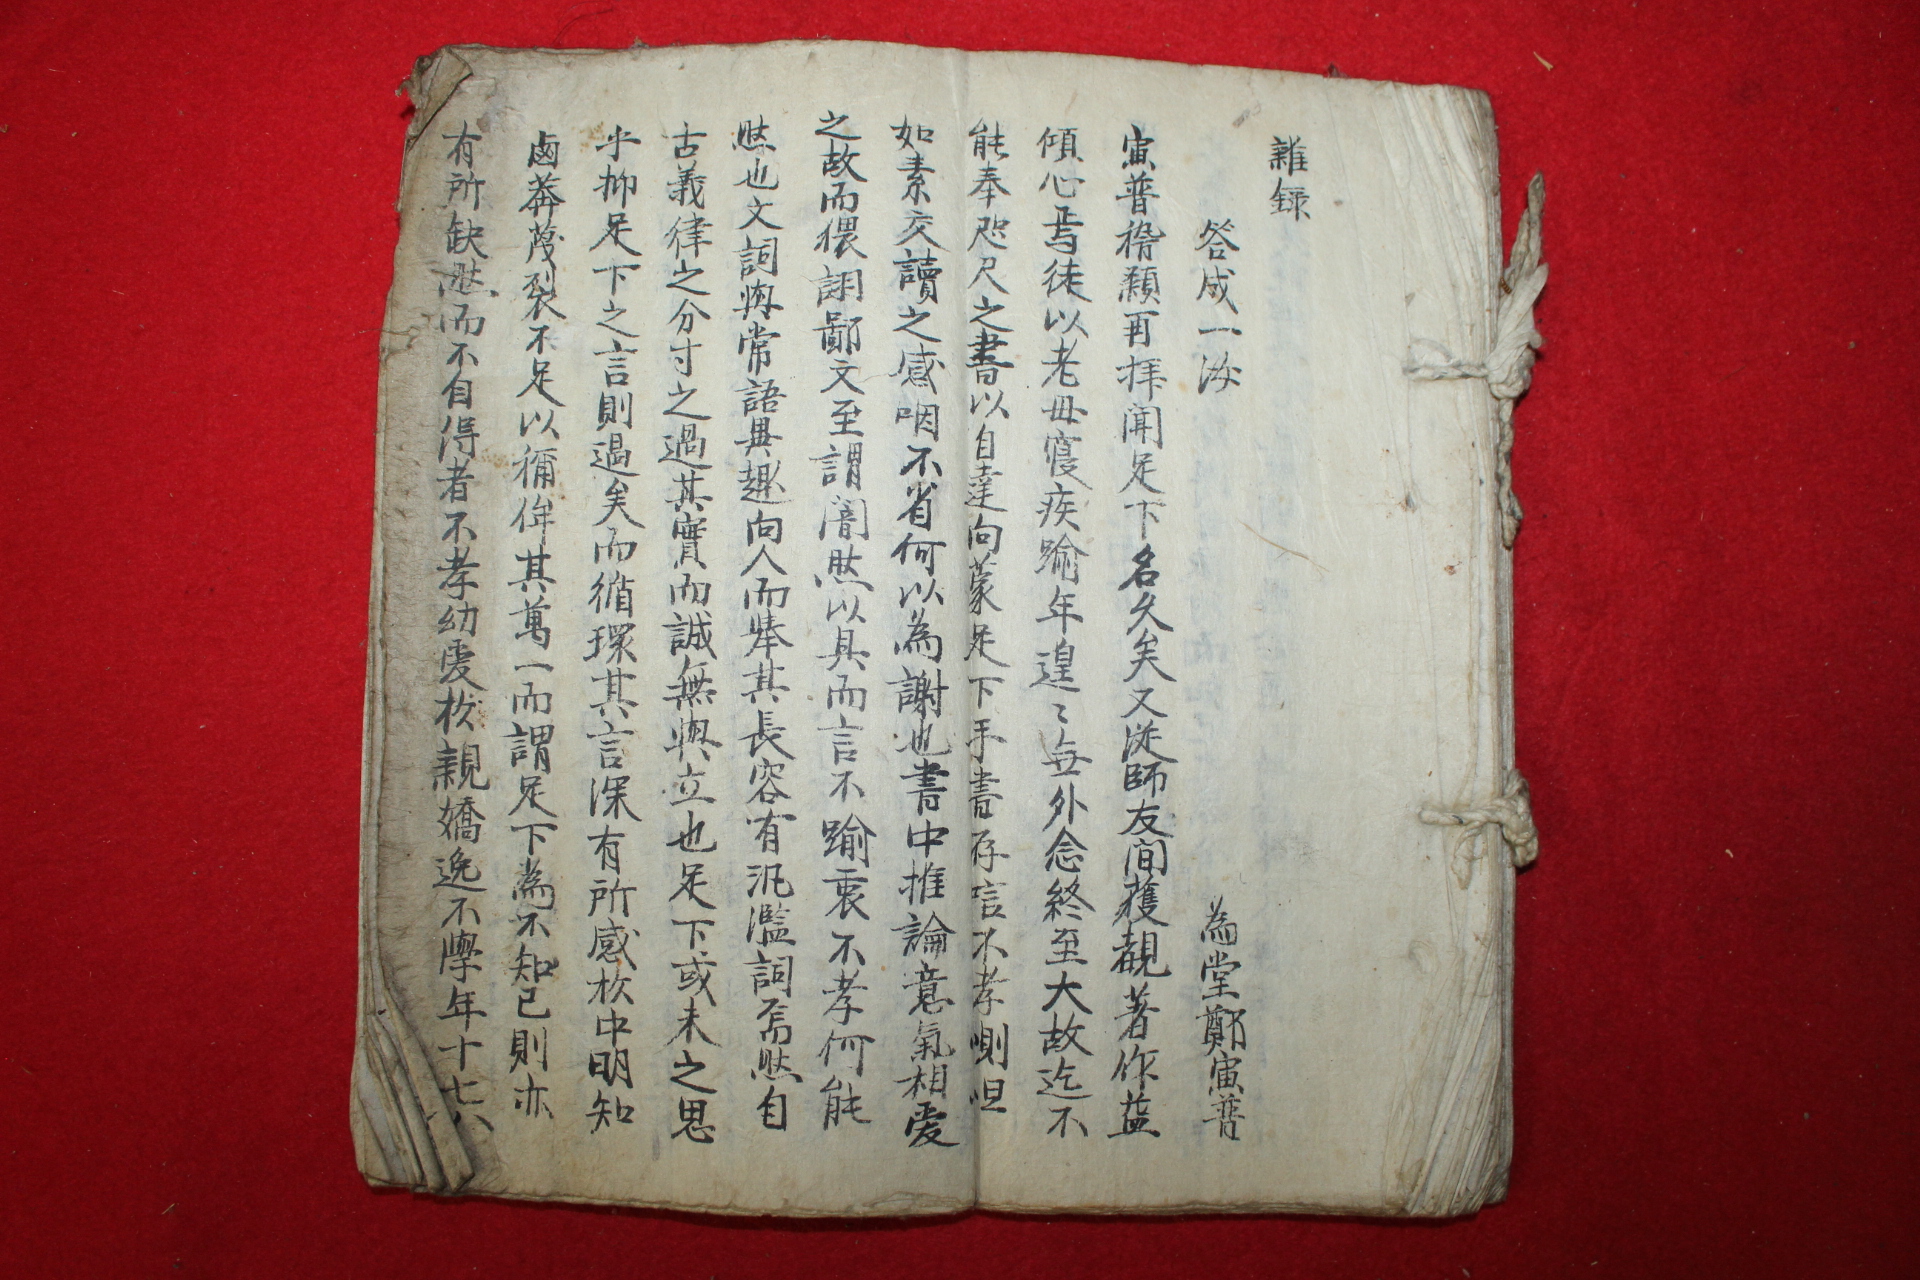 雜録
答成一汝 為堂鄭寅普
寅普稽顙再拜聞足下名久矣又從師友間獲覩著作益
傾心焉徒以老母寑疾踰年遑〻無外念終至大故迄不
能奉咫尺之書以自達向蒙足下手書存唁不孝惻怛
如素交讀之感咽不省何以為謝也書中推論意氣相愛
之故而猥詡鄙文至謂闇然以具而言不踰衷不孝何能
然也文詞與常語異趣向人而捧其長容有汎濫詞焉然自
古義律之分寸之過其實而誠無與立也足下或未之思
乎抑足下之言則過矣而循環其言深有所感於中明知
鹵莽蔑裂不足以稱侔其萬一而謂足下為不知已則亦
有所缺然而不自得者不孝幼處於親嬌逸不學年十七八